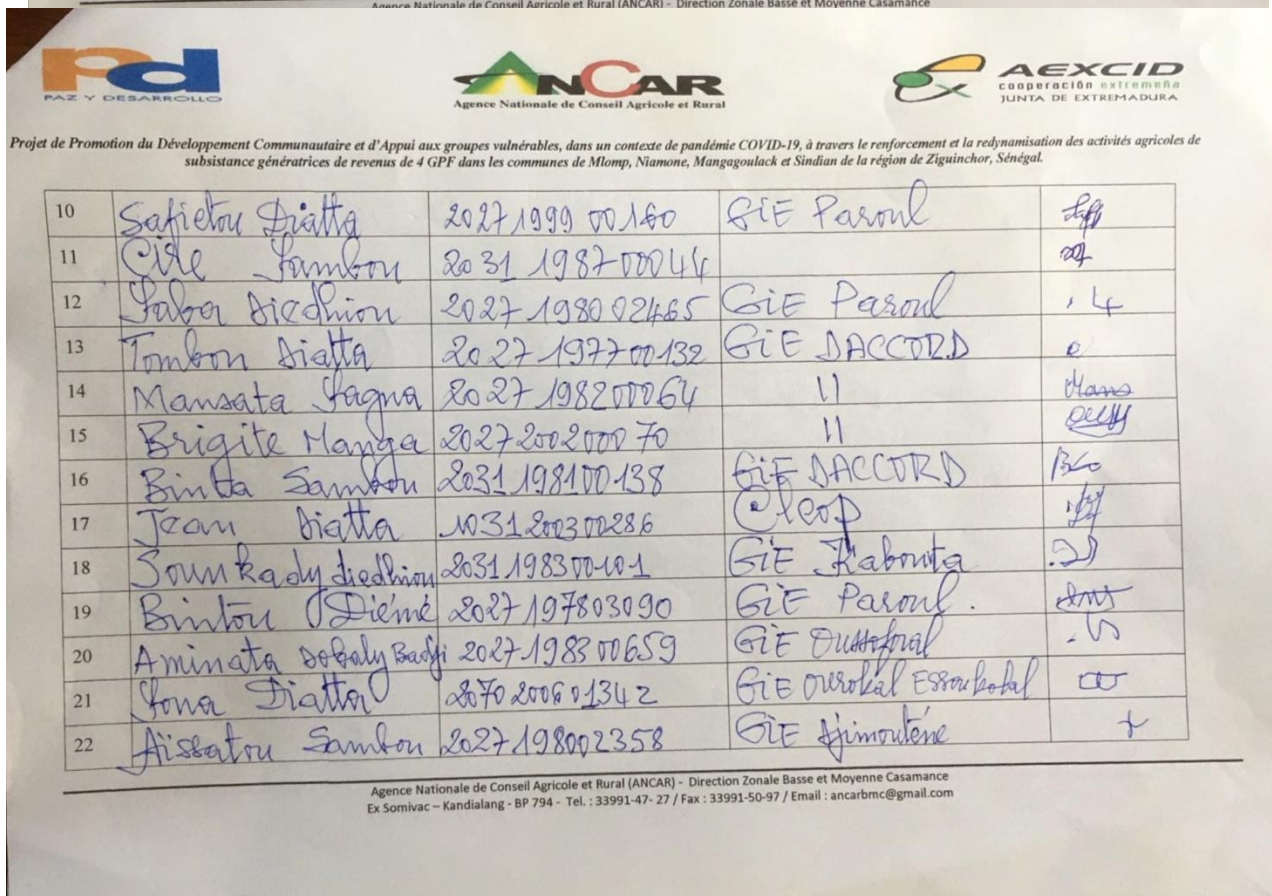 Agence Nationale de Conseil Agricole et Rural (ANCAR) - Direction Zonale Basse et Moyenne Casamance
Pd
PAZ Y DESARROLLO
ANCAR
Agence Nationale de Conseil Agricole et Rural
AEXCID
cooperación extremeña
JUNTA DE EXTREMADURA
Projet de Promotion du Développement Communautaire et d'Appui aux groupes vulnérables, dans un contexte de pandémie COVID-19, à travers le renforcement et la redynamisation des activités agricoles de
subsistance génératrices de revenus de 4 GPF dans les communes de Mlomp, Niamone, Mangagoulack et Sindian de la région de Ziguinchor, Sénégal.
10 Safietou Diatta 2027 1999 00160 GiE Paroul
11 Cire Sambou 2031 1987 00044
12 Saba Diedhiou 2027 1980 02465 GiE Paroul
13 Tombon Diatta 2027 1977 00132 GiE DACCORD
14 Mansata Sagna 2027 1982 00064 11
15 Brigite Manga 2027 2002 00070 11
16 Binta Sambou 2031 1981 00138 GiE DACCORD
17 Jean Diatta 1031 2003 00286 Cleop
18 Sounkady diedhiou 2031 1983 00101 GiE Kabouta
19 Bintou Diémé 2027 1978 03090 GiE Paroul.
20 Aminata Badji 2027 1983 00659 GiE
21 Sona Diatta 2070 2006 01342 GiE
22 Aïssatou Sambou 2027 1980 02358 GiE Djimouténe
Agence Nationale de Conseil Agricole et Rural (ANCAR) - Direction Zonale Basse et Moyenne Casamance
Ex Somivac – Kandialang - BP 794 - Tel. : 33991-47- 27 / Fax : 33991-50-97 / Email : ancarbmc@gmail.com